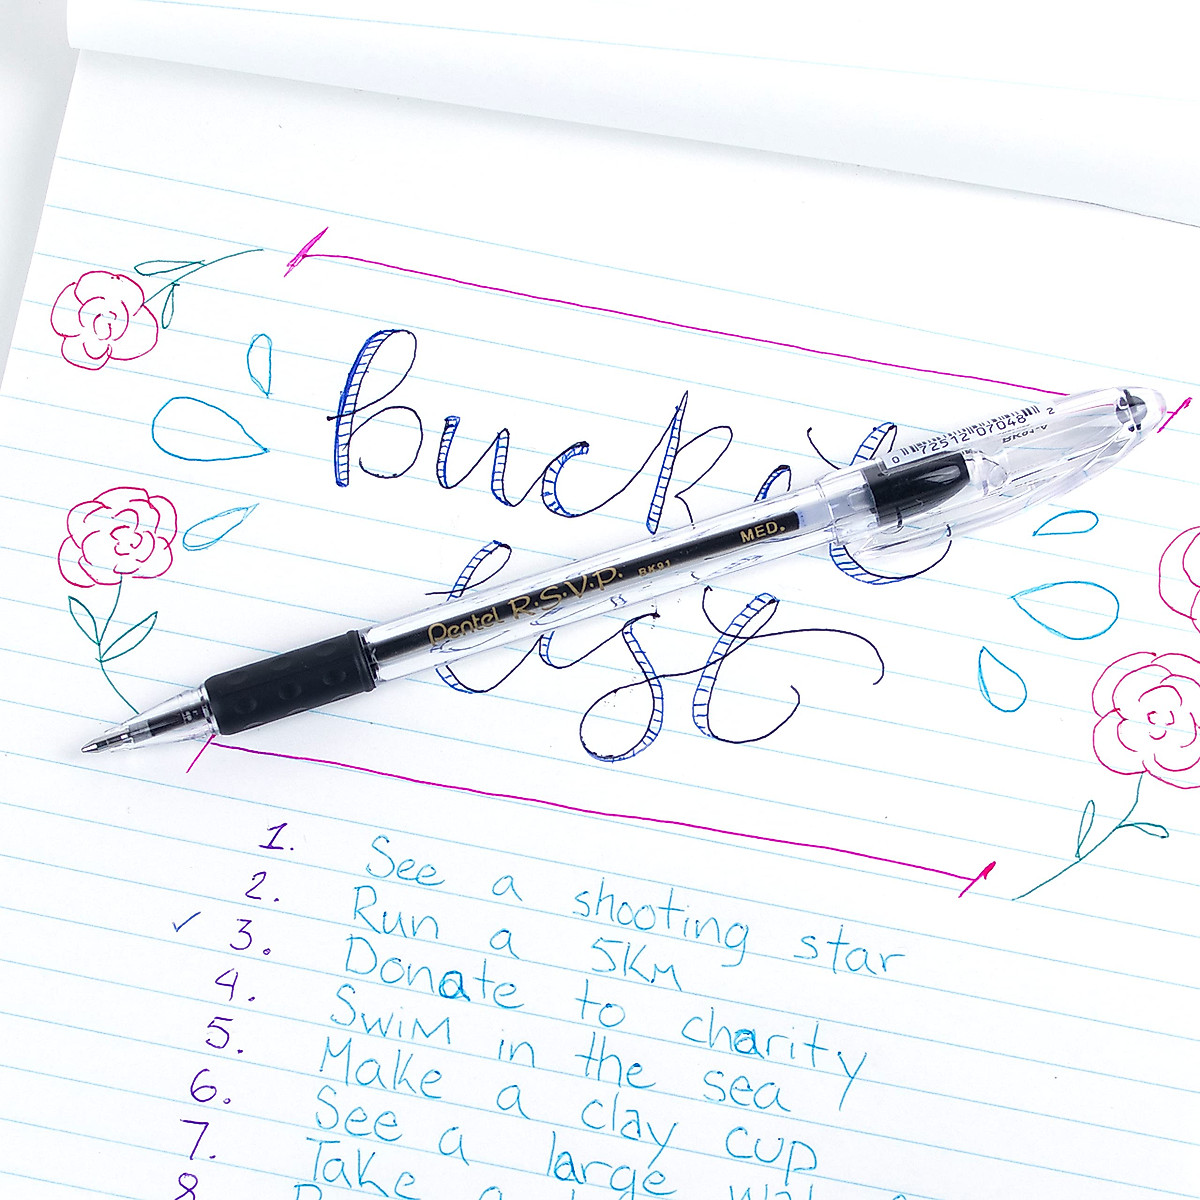 bucket
list
0 72512 07048 2
BK91-V
MED.
Pentel R.S.V.P. BK91
1. See a shooting star
2. Run a 5KM
✓ 3. Donate to charity
4. Swim in the sea
5. Make a clay cup
6. See a large
7. Take a
8.